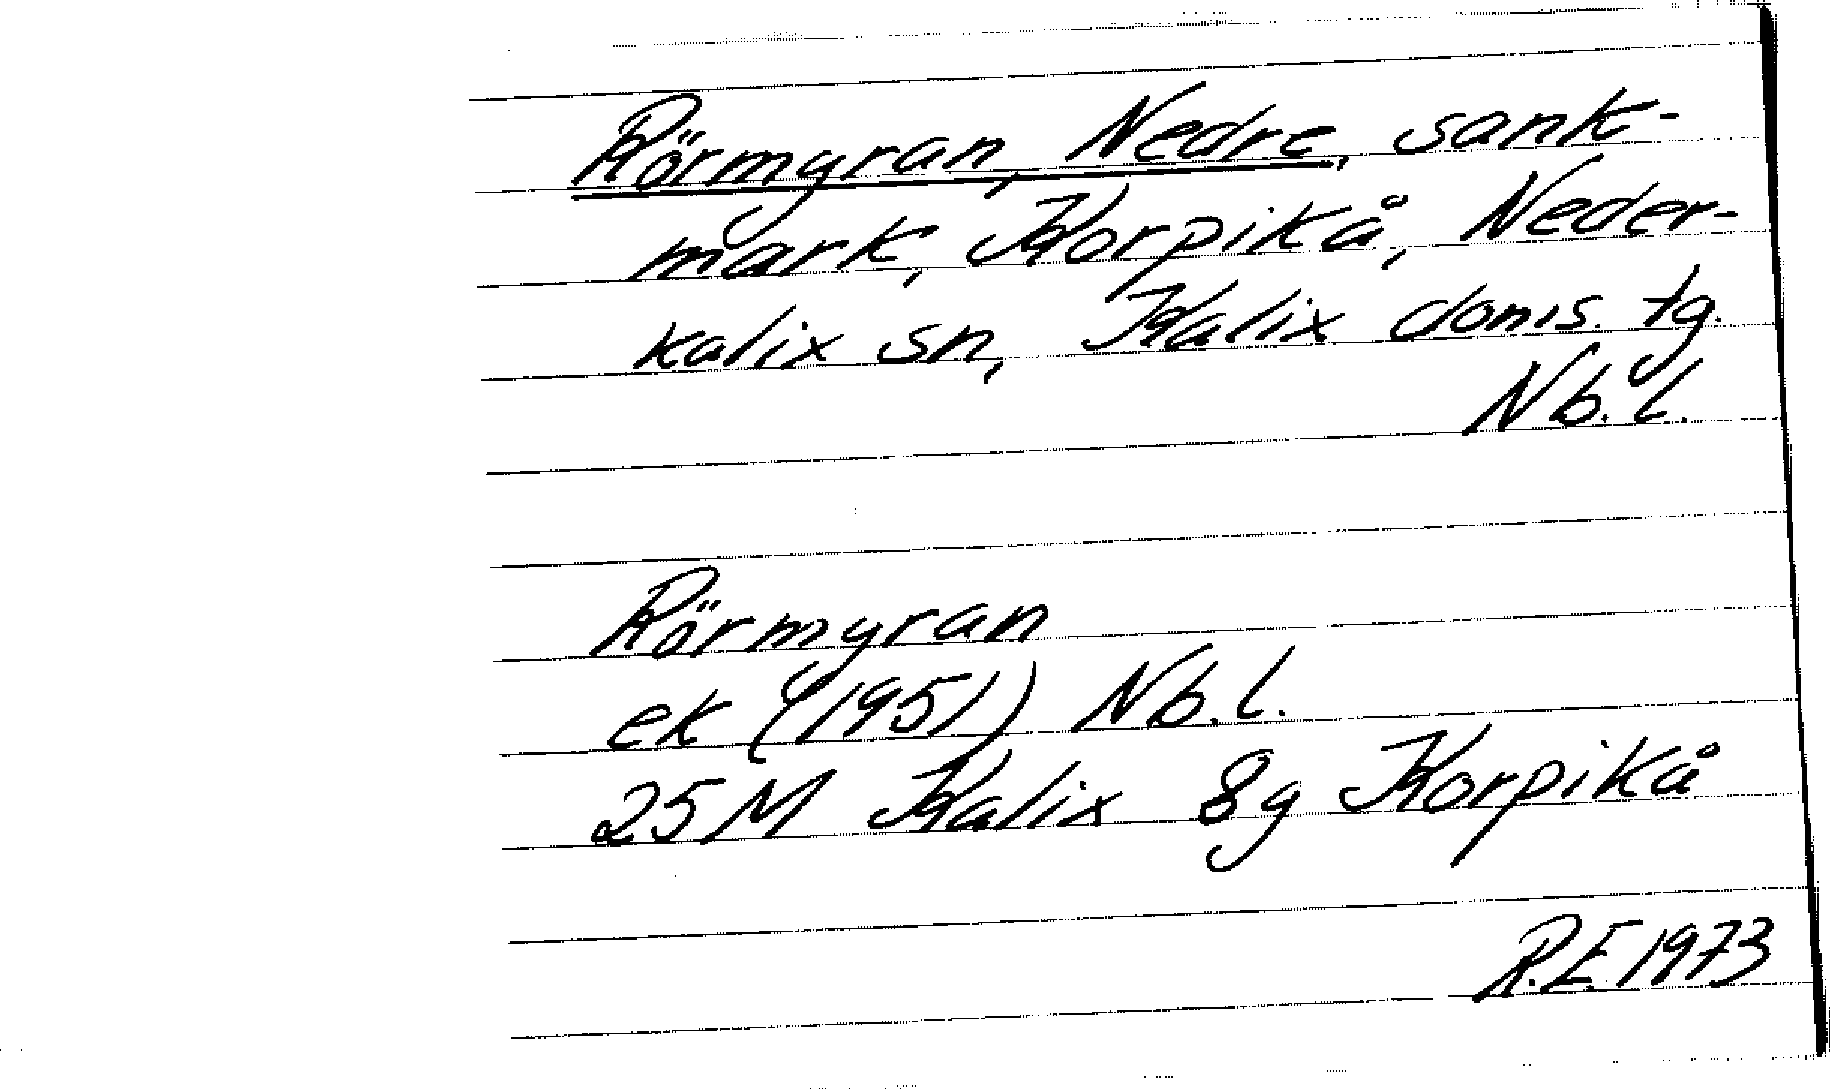 Rörmyran, Nedre, sank-
mark, Korpikå, Neder-
kalix sn, Kalix doms. tg.
Nb. l.
Rörmyran
ek (1951) Nb. l.
25M Kalix 8g Korpikå
R.E. 1973